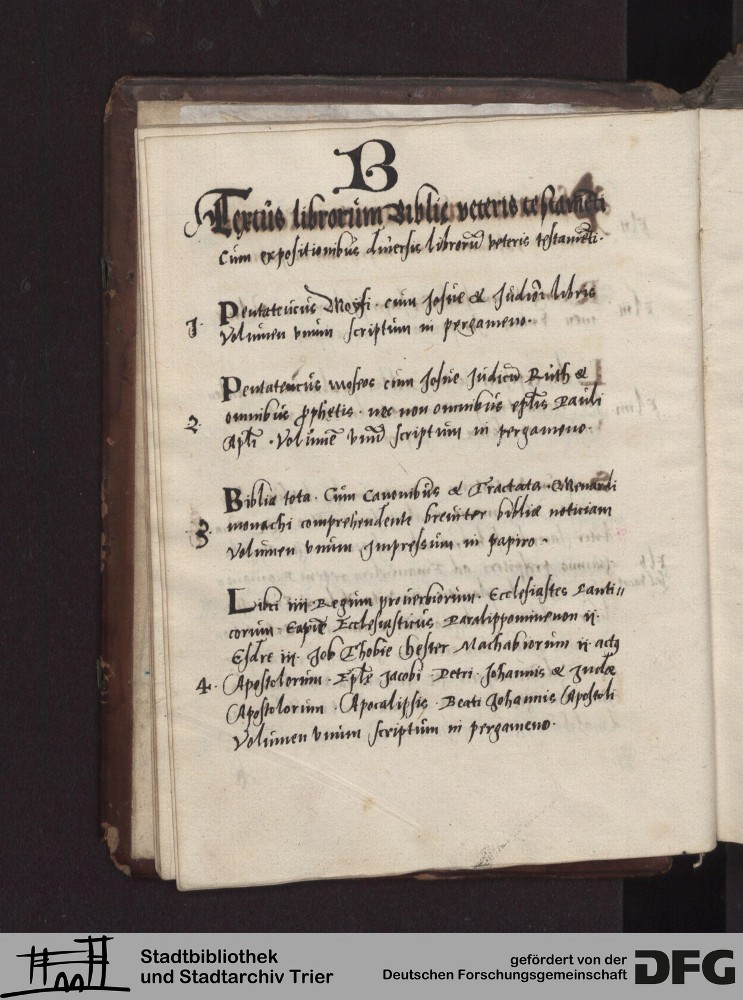 B
Textus librorum Biblie veteris testamēti
Cum expositionibus diuersis librorū veteris testamēti.
Pentateucus Moysi. cum Josue & Judicū libris
1. Volumen vnum scriptum in pergameno.
Pentateucus moseos cum Josue Judicū Ruth &
omnibus prophetis. nec non omnibus eplīs Pauli
2. Apłi. Volumē vnū scriptum in pergameno.
Biblia tota. Cum Canonibus & Tractata. Menardi
monachi comprehendente breuiter biblie noticiam
3. Volumen vnum Impressum in papiro.
Libri iiii Regum prouerbiorum. Ecclesiastes Canti〃
corum. Sapiē Ecclesiasticus Paralippominenon ii.
Esdre iii. Job Thobie hester Machabiorum ii actꝫ
4. Apostolorum. Epłe Jacobi. Petri. Johannis & Judæ
Apostolorum. Apocalipsis. Beati Johannis Apostoli
Volumen vnum scriptum in pergameno.
Stadtbibliothek
und Stadtarchiv Trier
gefördert von der
Deutschen Forschungsgemeinschaft
DFG